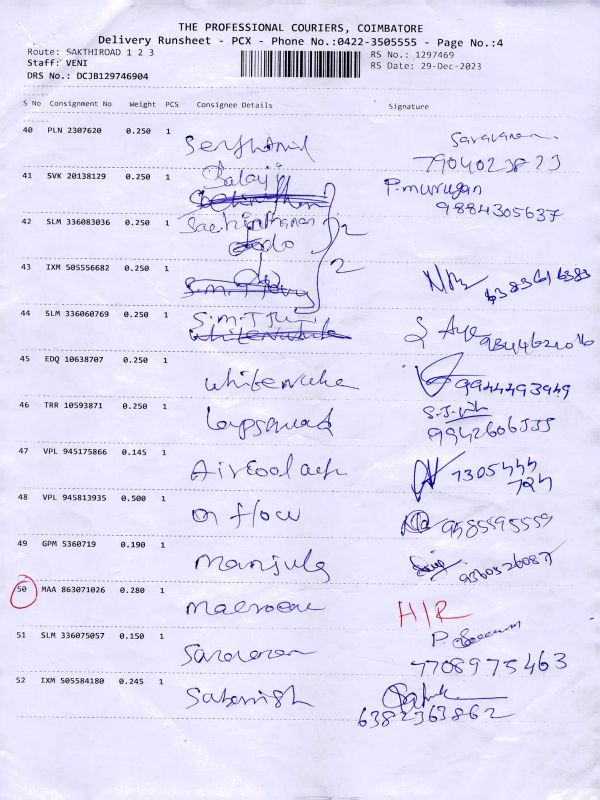 THE PROFESSIONAL COURIERS, COIMBATORE
Delivery Runsheet - PCX - Phone No.:0422-3505555 - Page No.:4
Route: SAKTHIROAD 1 2 3 RS No.: 1297469
Staff: VENI RS Date: 29-Dec-2023
DRS No.: DCJB129746904
S No Consignment No Weight PCS Consignee Details Signature
40 PLN 2307620 0.250 1 Saravanan
7904023823
41 SVK 20138129 0.250 1 Balaji P.murugan
9884305637
42 SLM 336083036 0.250 1
2
43 IXM 505556682 0.250 1 2
44 SLM 336060769 0.250 1 S.M.T
45 EDQ 10638707 0.250 1 9944493949
46 TRR 10593871 0.250 1 9942606555
47 VPL 945175866 0.145 1 7305444
724
48 VPL 945813935 0.500 1 on flow 9585595559
49 GPM 5360719 0.190 1 Manjula 9360526087
50 MAA 863071026 0.280 1 H/R
51 SLM 336075057 0.150 1 Saravanan P.
7708975463
52 IXM 505584180 0.245 1
6382363862